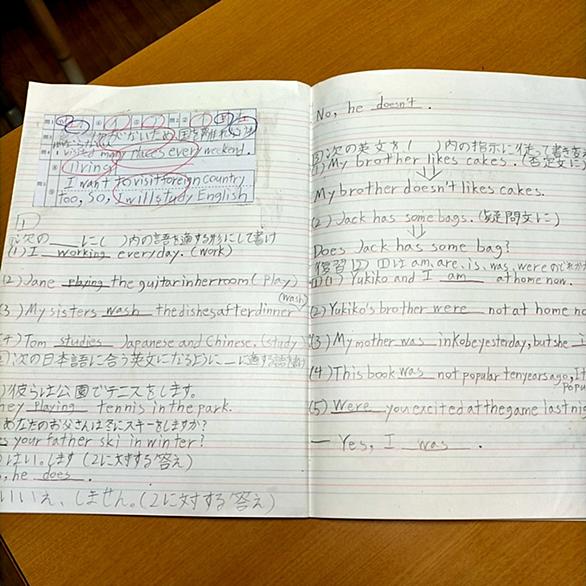 I visited many places every weekend.
living
I want to visit foreign country
too, So, I will study English
1
次の___に( )内の語を適する形にして書け
(1) I working everyday. (work)
(2) Jane playing the guitar in her room (play)
(3) My sisters wash the dishes after dinner
(wash)
(4) Tom studies Japanese and Chinese. (study
次の日本語に合う英文になるように_に適する語を書け
彼らは公園でテニスをします。
hey playing tennis in the park.
あなたのお父さんは冬にスキーをしますか?
s your father ski in winter?
はい。します(2に対する答え)
, he does.
いいえ、しません。(2に対する答え)
No, he doesn't.
次の英文を( )内の指示に従って書き
(1) My brother likes cakes. (否定文に)
My brother doesn't likes cakes.
(2) Jack has some bags. (疑問文に)
Does Jack has some bag?
復習 am, are, is, was, were の
(1) Yukiko and I am at home now.
(2) Yukiko's brother were not at home
(3) My mother was in Kobe yesterday, but she
(4) This book was not popular ten years ago, It
popu
(5) Were you excited at the game last nig
— Yes, I was.